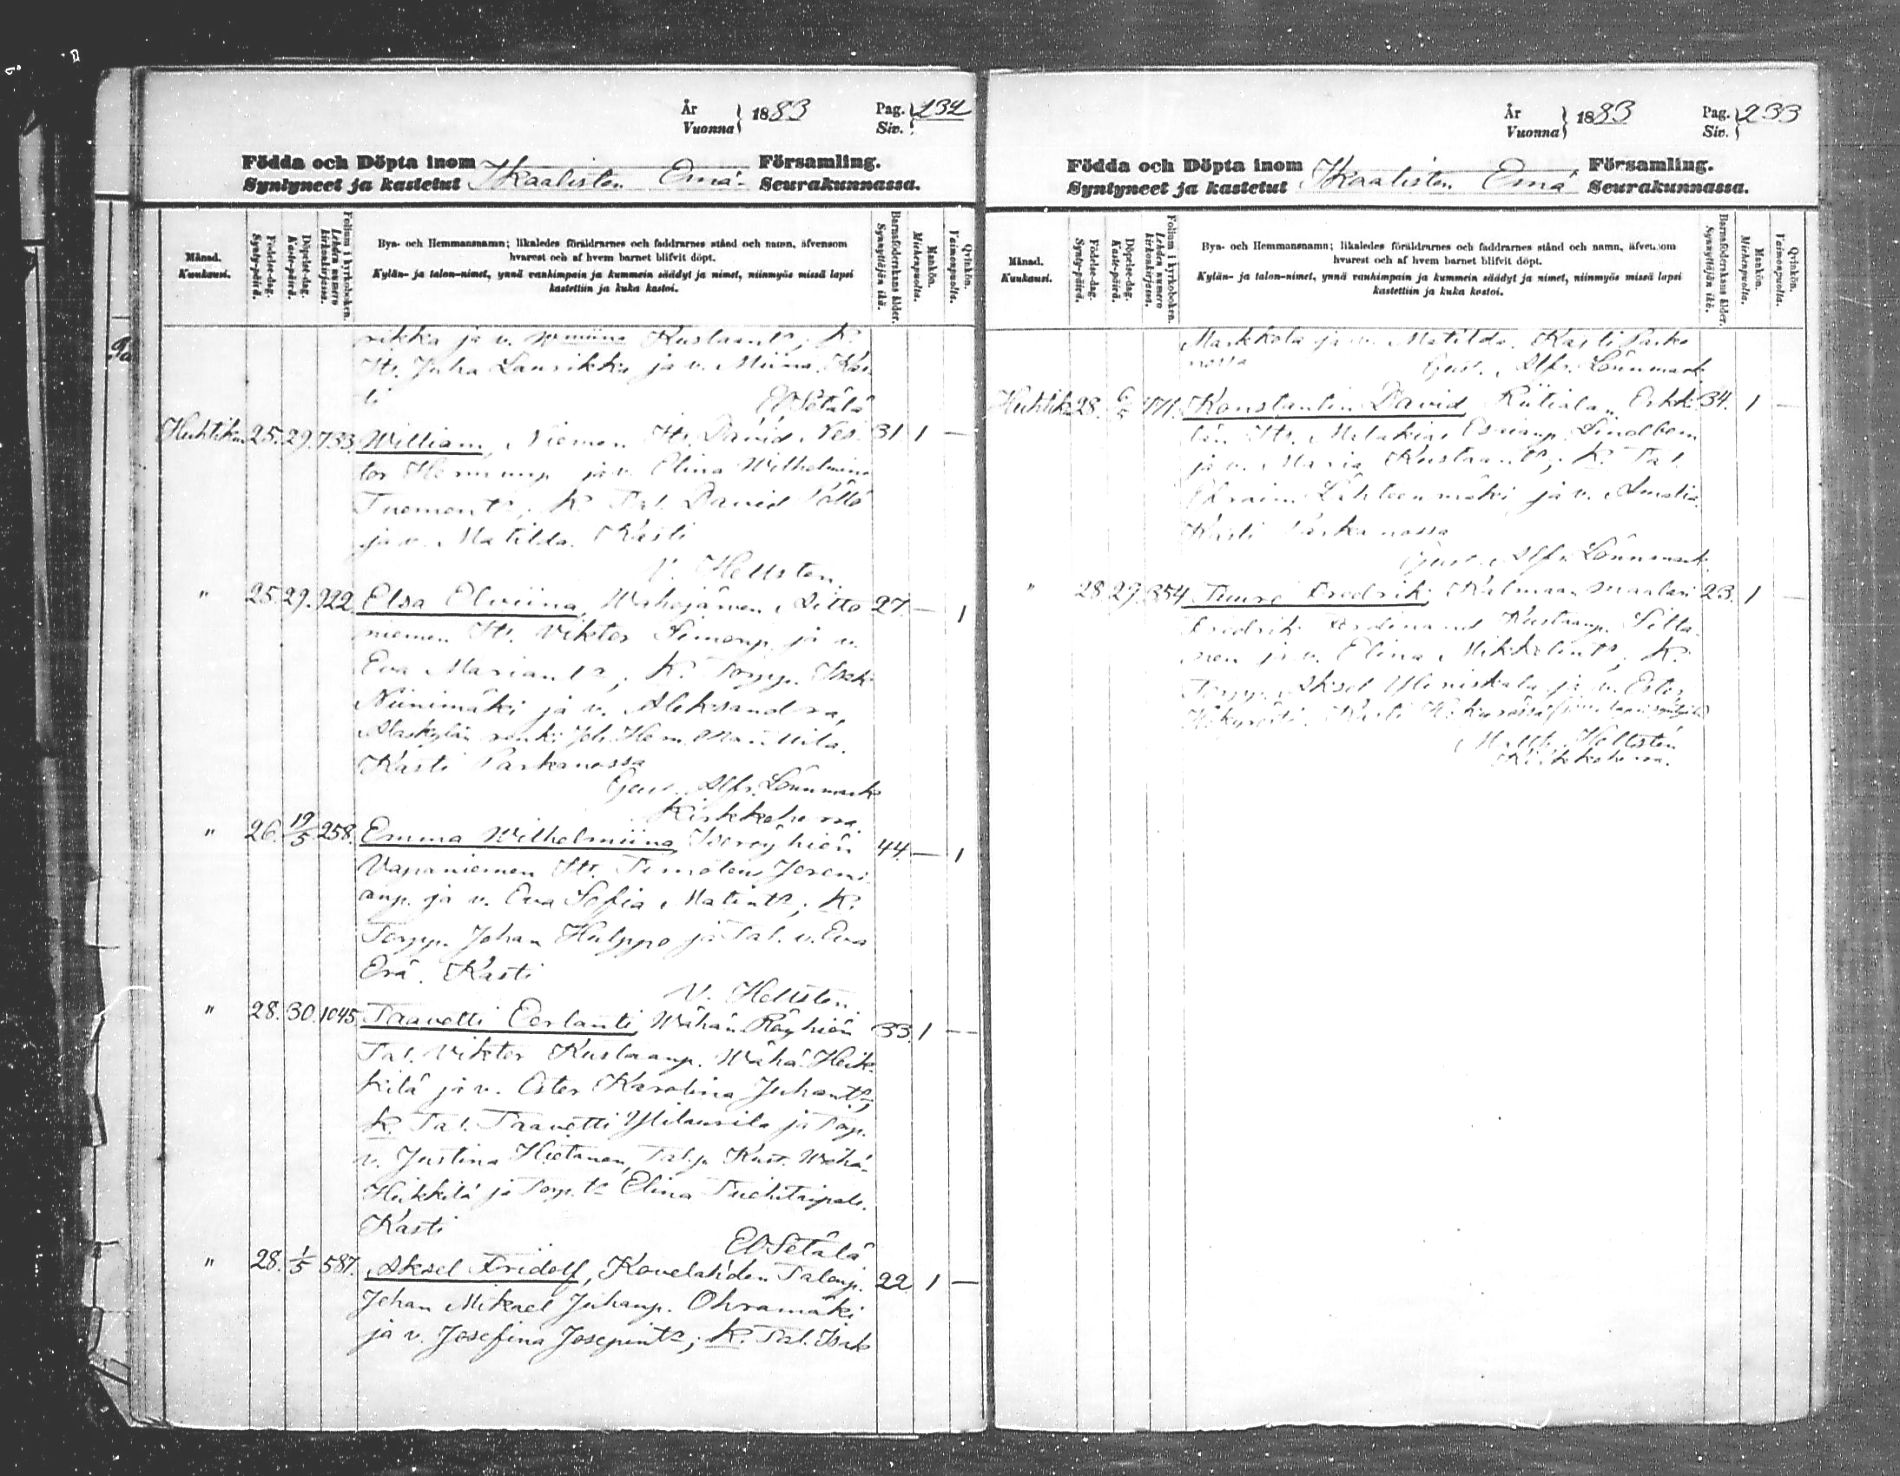 År
Vuonna
1883
Pag.
Siv.
232
Födda och Döpta inom
Syntyneet ja kastetut
Ikaalisten Emä-
Församling.
Seurakunnassa.
Månad.
Kuukausi.
Födelse-dag.
Synty-päivä.
Döpelse-dag.
Kaste-päivä.
Folium i kyrkoboken.
Lehden numero kirkonkirjassa.
Bya- och Hemmansnamn; likaledes föräldrarnes och faddrarnes stånd och namn, äfvensom
hvarest och af hvem barnet blifvit döpt.
Kylän- ja talon-nimet, ynnä vanhimpain ja kummein säädyt ja nimet, niinmyös missä lapsi
kastettiin ja kuka kastoi.
Barnaföderskans ålder.
Synnyttäjän ikä.
Mankön.
Miehenpuolia.
Qvinkön.
Vaimonpuolia.
rikka ja v. Kustaant.; K.
Itr. Juha Laurikka ja v. Miina. Kas-
ti
EOSetälä
Huhtik. 25. 29. 733. William, Niemen Itr. David Nes- 31 1 —
tor Hermanp. ja v. Elina Wilhelmina
Tuomont.; K. Tal. David
ja v. Matilda. Kasti
V. Hellsten.
" 25. 29. 922. Elsa Elviina, Wahojärven 27. — 1
niemen Itr. Viktor Simonp. ja v.
Eva Mariant.; K. Torpp. Isak
Niinimäki ja v. Aleksandra,
Alaskylän renki Joh. Herm. Mannila.
Kasti Parkanossa
Gust. Alfr. Lönnmark
Kirkkoherra.
" 26. 19/5 258. Emma Wilhelmiina, Isoröyhiön 44. — 1
Vapaniemen Itr. Timoteus Jeremi-
anp. ja v. Eva Sofia Matint.; K.
Torpp. Johan Hulppo ja Tal. v. Eva
Erä. Kasti
V. Hellsten.
" 28. 30. 1045. Taavetti Eerlanti, Wähän Röyhiön 33. 1 —
Tal. Viktor Kustaanp. Wähä-Heik-
kilä ja v. Ester Karolina Juhant.;
K. Tal. Taavetti Ylilaurila ja Torp.
v. Justina Hietanen, Tal.p. Kust. Wähä-
Heikkilä ja Torp. t. Elina
Kasti
EOSetälä
" 28. 1/5 587. Aksel Fridolf, Kovelahden Talonp. 22 1 —
Johan Mikael Juhanp. Ohramäki
ja v. Josefina Josepint.; K. Tal. Isak
År
Vuonna
1883
Pag.
Siv.
233
Födda och Döpta inom
Syntyneet ja kastetut
Ikaalisten Emä
Församling.
Seurakunnassa.
Månad.
Kuukausi.
Födelse-dag.
Synty-päivä.
Döpelse-dag.
Kaste-päivä.
Folium i kyrkoboken.
Lehden numero kirkonkirjassa.
Bya- och Hemmansnamn; likaledes föräldrarnes och faddrarnes stånd och namn, äfvensom
hvarest och af hvem barnet blifvit döpt.
Kylän- ja talon-nimet, ynnä vanhimpain ja kummein säädyt ja nimet, niinmyös missä lapsi
kastettiin ja kuka kastoi.
Barnaföderskans ålder.
Synnyttäjän ikä.
Mankön.
Miehenpuolia.
Qvinkön.
Vaimonpuolia.
Markkola ja v. Matilda. Kasti Parka-
nossa
Gust. Alfr. Lönnmark
Huhtik. 28. Konstantin David, Riitiala, Erkki- 34. 1 —
län Itr. Malakias Lindbom
ja v. Maria Kustaant.; K. Tal.
Efraim Lähteenmäki ja v. Amalia.
Kasti Parkanossa
Gust. Alfr. Lönnmark.
" 28. 29. 354. Tuure Fredrik, Kalmaan maalari 23. 1 —
Fredrik Ferdinand Kustaanp. Silla-
nen ja v. Elina Mikkelint.; K.
Torpp. Aksel Yliniskala ja v. Ester,
Kasti
Hellstén
Kirkkoherra.